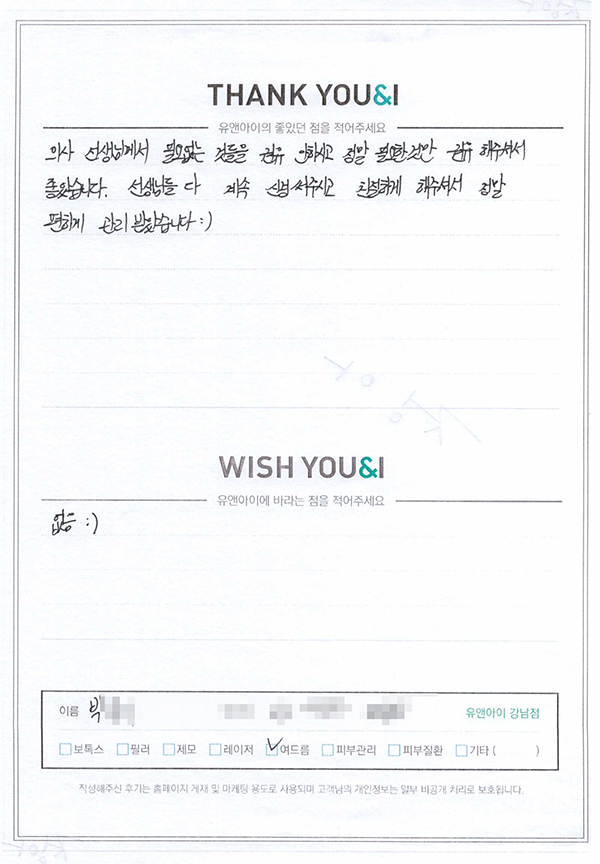 THANK YOU&I
유앤아이의 좋았던 점을 적어주세요
의사 선생님께서 필요없는 것들을 권유 안하시고 정말 필요한것만 권유 해주셔서
좋았습니다. 선생님들 다 계속 신경써주시고 친절하게 해주셔서 정말
편하게 관리 받았습니다 :)
WISH YOU&I
유앤아이에 바라는 점을 적어주세요
없음 :)
이름 박 유앤아이 강남점
보톡스 필러 제모 레이저 여드름 피부관리 피부질환 기타 ( )
작성해주신 후기는 홈페이지 게재 및 마케팅 용도로 사용되며 고객님의 개인정보는 일부 비공개 처리로 보호됩니다.